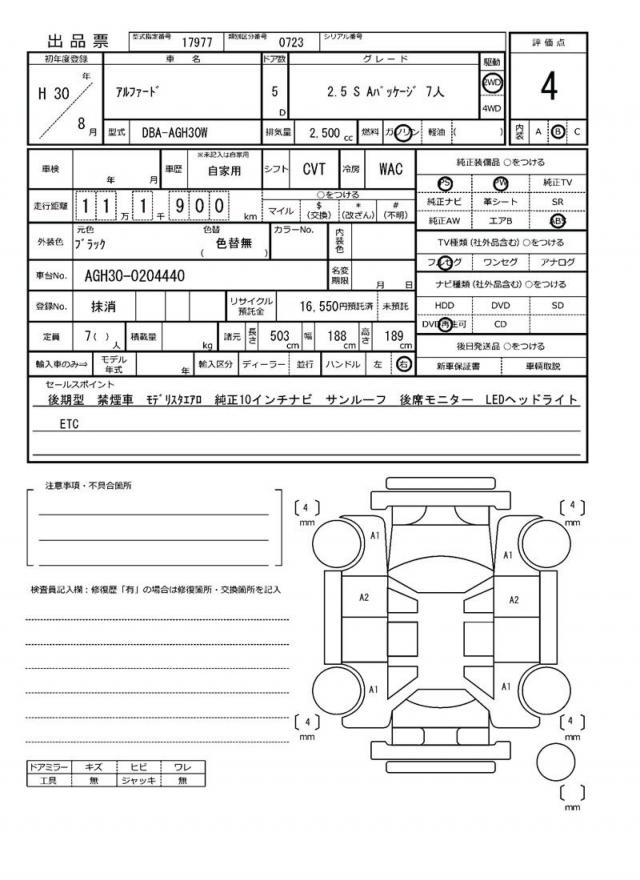 出品票 型式指定番号 17977 類別区分番号 0723 シリアル番号
初年度登録 車名 ドア数 グレード 駆動 評価点
H 30 年 8 月 アルファード 5 D 2.5 S Aパッケージ 7人 2WD 4WD 4
型式 DBA-AGH30W 排気量 2,500 cc 燃料 ガソリン 軽油 ( ) 内装 A B C
車検 年 月 車歴 ※未記入は自家用 自家用 シフト CVT 冷房 WAC
純正装備品 ○をつける
PS PW 純正TV
純正ナビ 革シート SR
純正AW エアB ABS
走行距離 1 1 万 1 千 9 0 0 km
○をつける
マイル $ (交換) * (改ざん) # (不明)
外装色 元色 ブラック 色替 ( 色替無 ) カラーNo. 内装色
TV種類 (社外品含む) ○をつける
フルセグ ワンセグ アナログ
車台No. AGH30-0204440 名変期限 月 日
ナビ種類 (社外品含む) ○をつける
HDD DVD SD
DVD再生可 CD
登録No. 抹消 リサイクル預託金 16,550円預託済 未預託
定員 7( ) 人 積載量 kg 諸元 長さ 503 cm 幅 188 cm 高さ 189 cm
後日発送品 ○をつける
新車保証書 車輌取説
輸入車のみ⇒ モデル年式 年 輸入区分 ディーラー 並行 ハンドル 左 右
セールスポイント
後期型 禁煙車 モデリスタエアロ 純正10インチナビ サンルーフ 後席モニター LEDヘッドライト
ETC
注意事項・不具合箇所
検査員記入欄：修復歴「有」の場合は修復箇所・交換箇所を記入
[ 4 ] mm
[ 4 ] mm
A1 A1
A2 A2
A1 A1
[ 4 ] mm
[ 4 ] mm
[ ] mm
ドアミラー キズ ヒビ ワレ
工具 無 ジャッキ 無